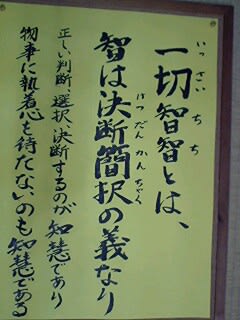 一切智智とは、
いっさいちち
智は決断簡択の義なり
けつだんかんちゃく
正しい判断、選択、決断するのが知慧であり
物事に執着心を待たないのも知慧である